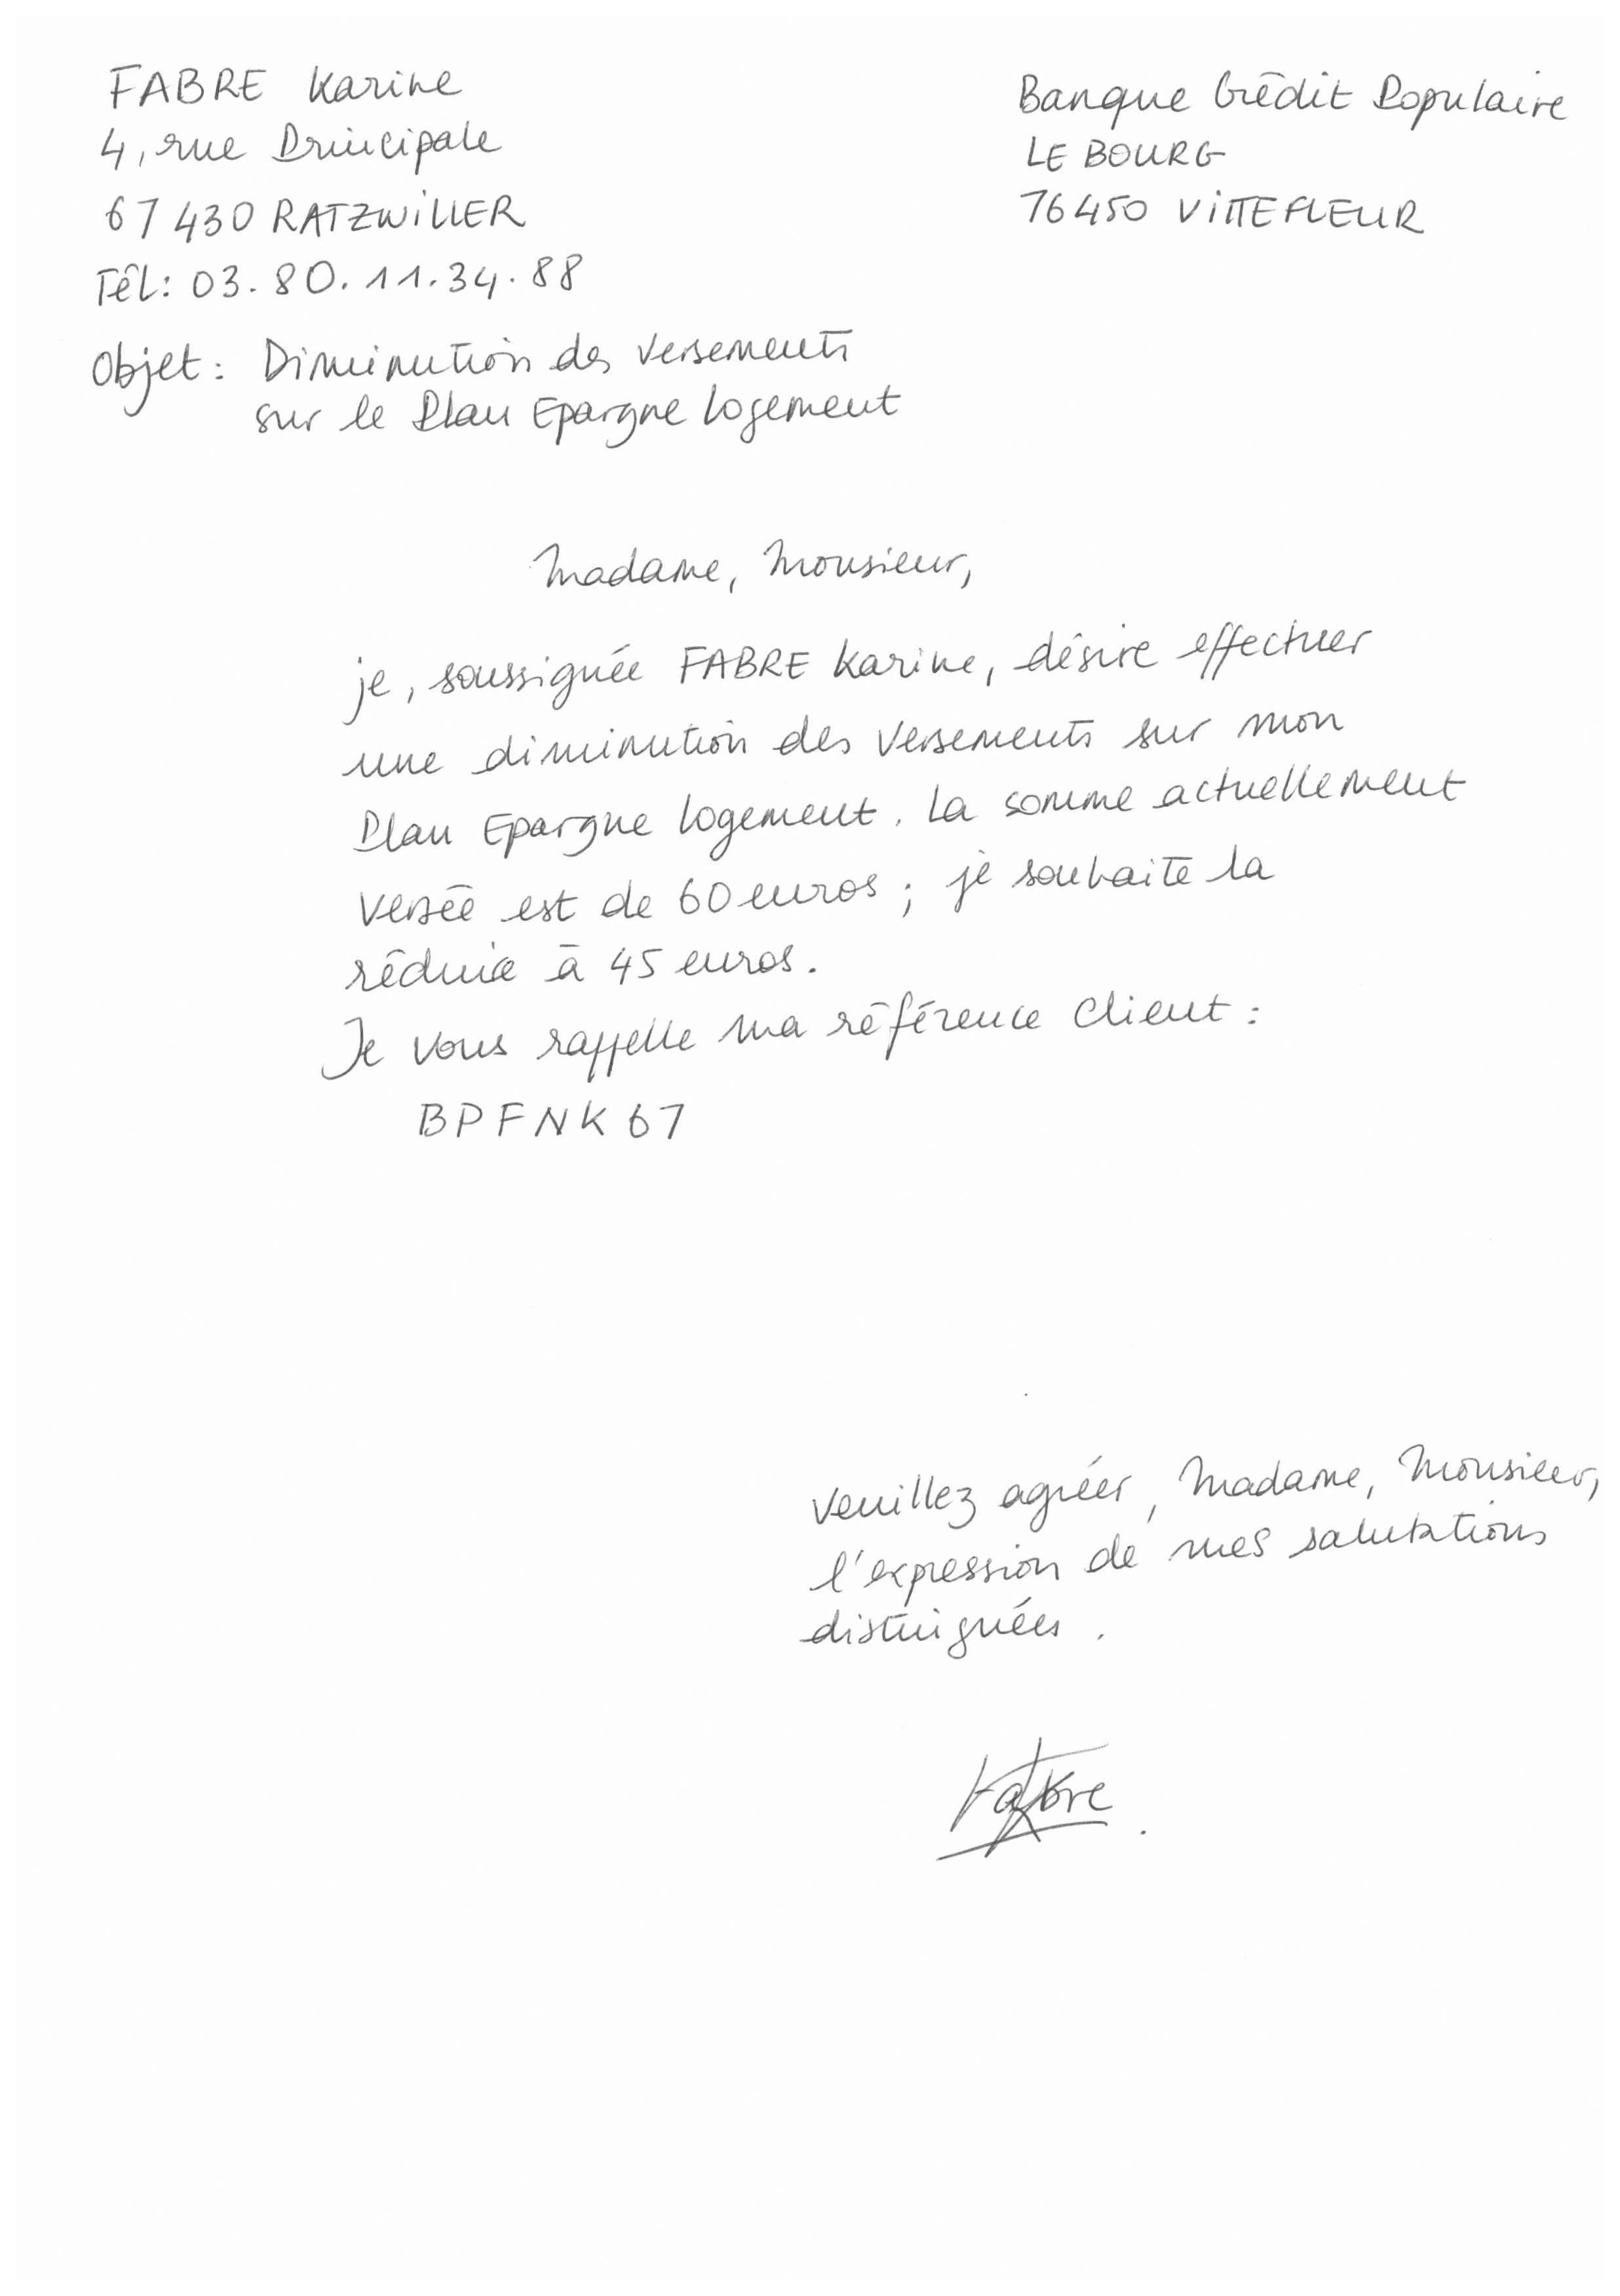 FABRE Karine
4, rue Principale
67430 RATZWILLER
Tél: 03.80.11.34.88
Banque Crédit Populaire
LE BOURG
76450 VITTEFLEUR
Objet: Diminution des versements
sur le Plan Epargne Logement
Madame, Monsieur,
je, soussignée FABRE Karine, désire effectuer
une diminution des versements sur mon
Plan Epargne Logement. La somme actuellement
versée est de 60 euros ; je souhaite la
réduire à 45 euros.
Je vous rappelle ma référence client :
BPFNK67
Veuillez agréer, Madame, Monsieur,
l'expression de mes salutations
distinguées.
Fabre